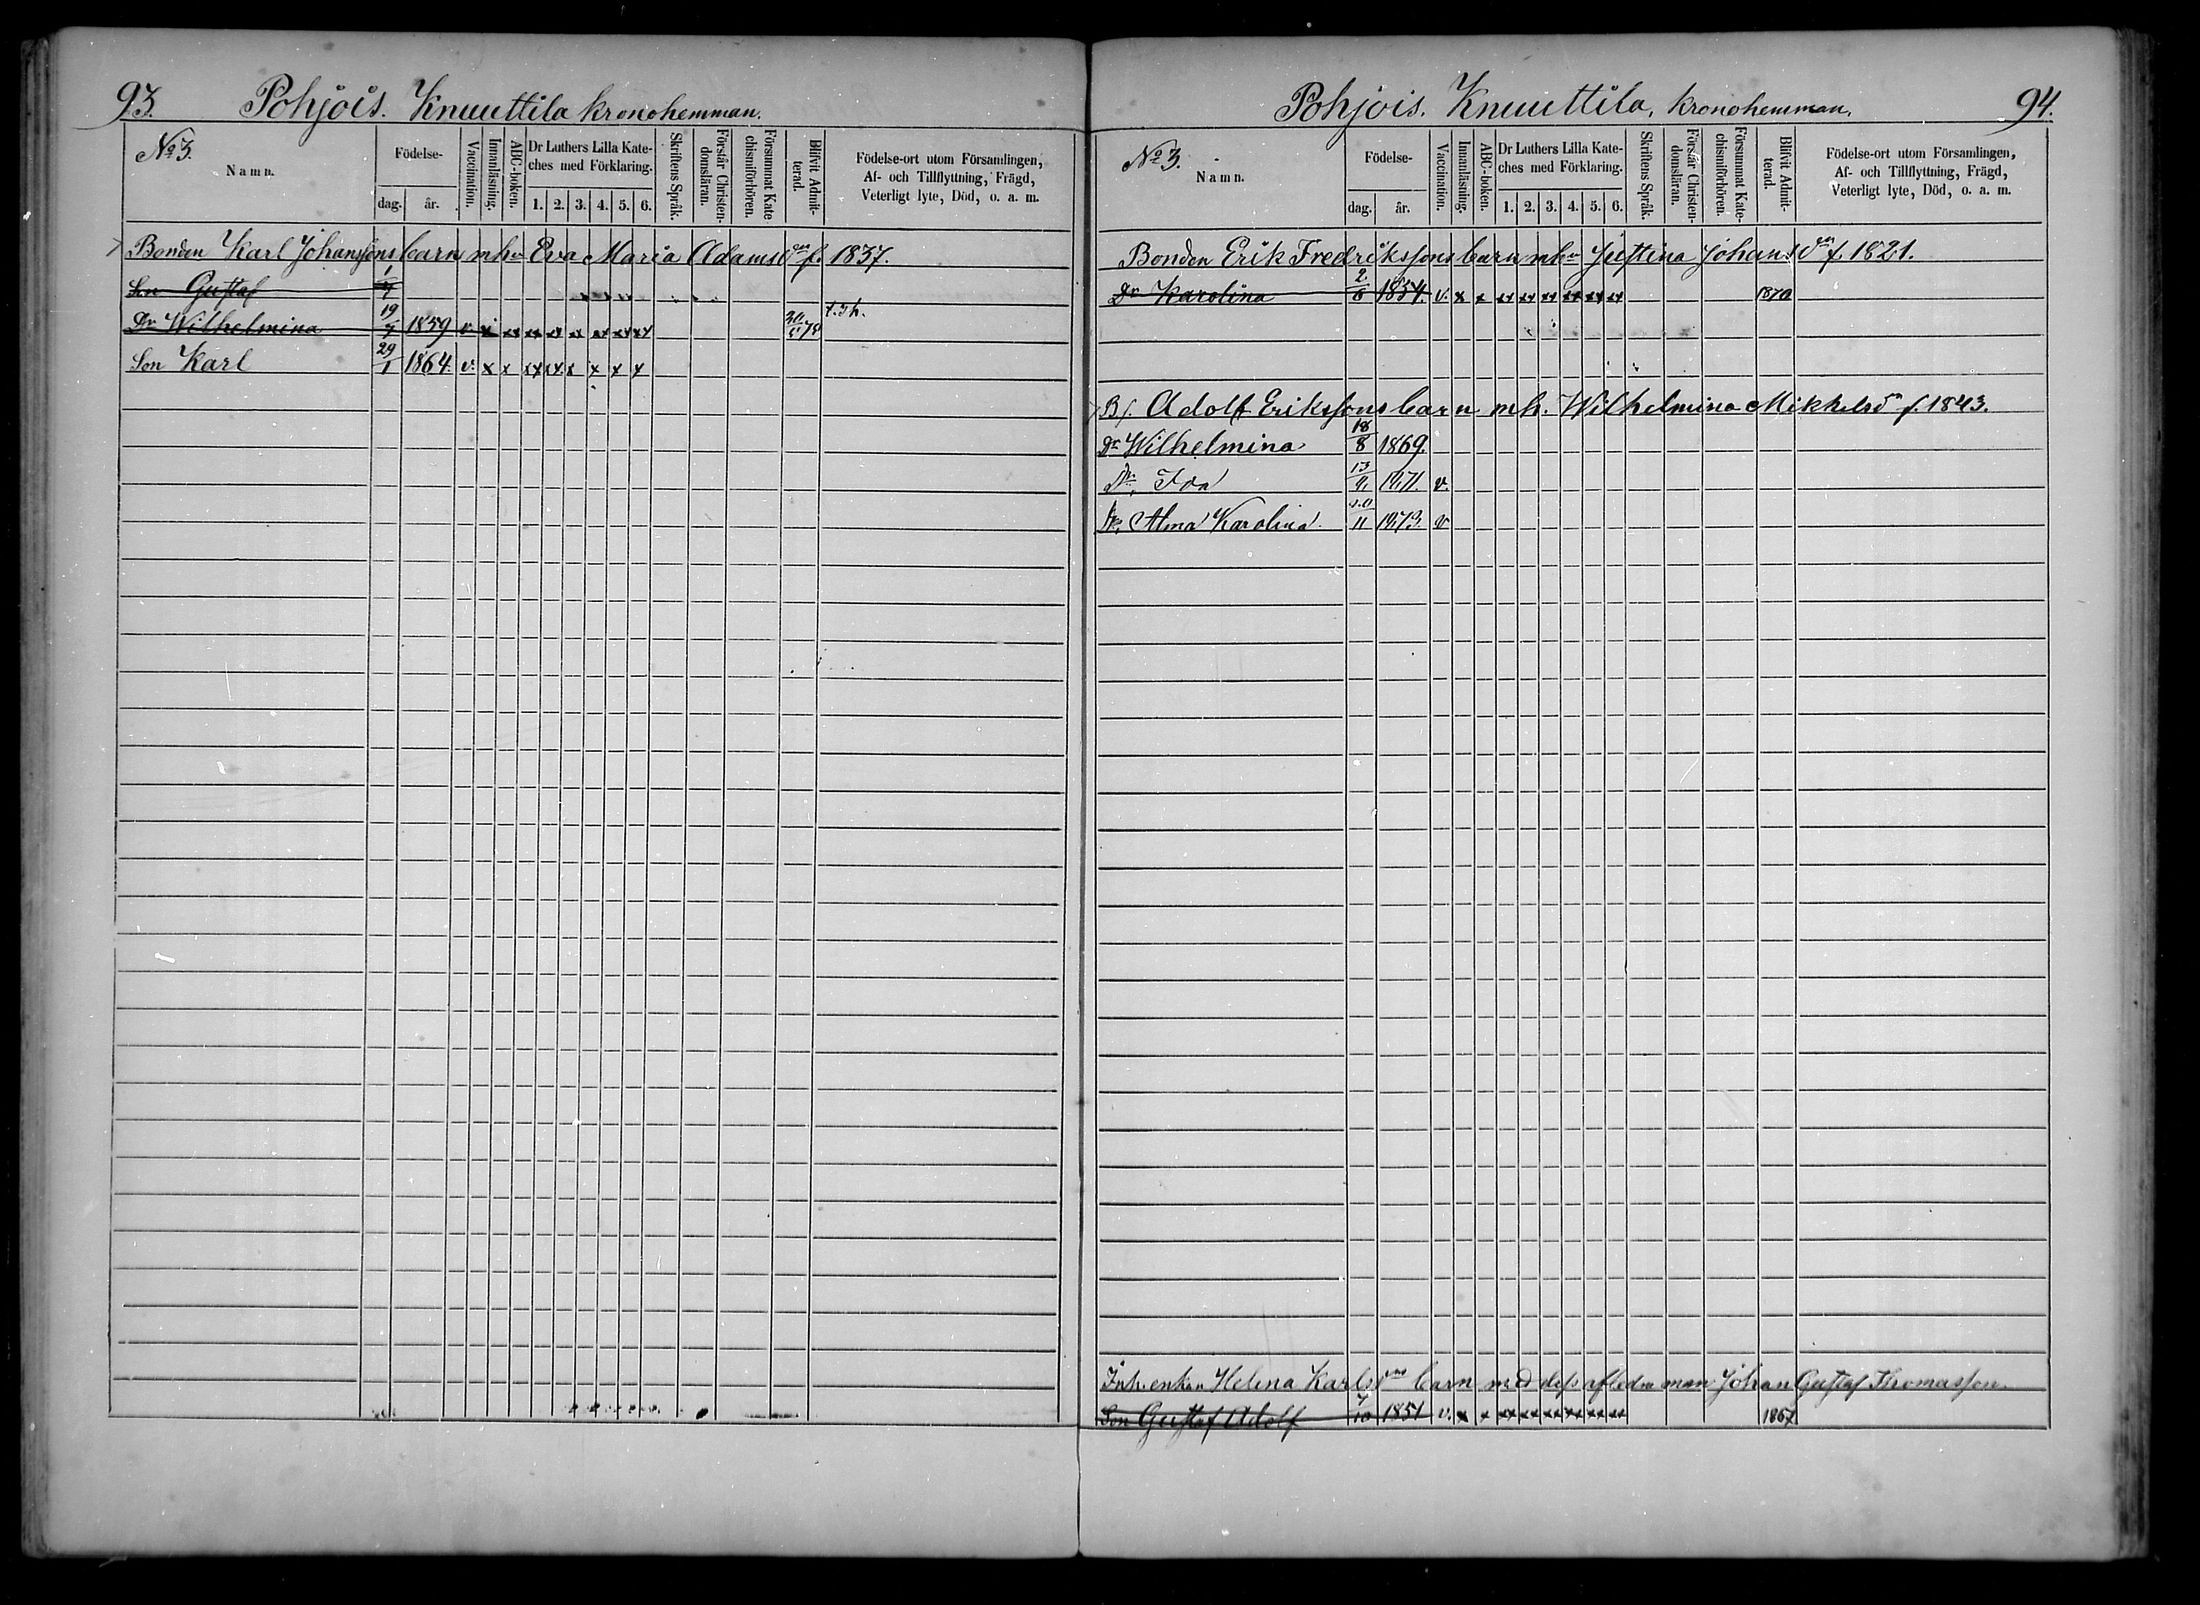 93. Pohjois. Knuuttila kronohemman.
No 3.
Namn.
Födelse-
dag. år.
Vaccination.
Innanläsning.
ABC-boken.
Dr Luthers Lilla Kate-
ches med Förklaring.
1. 2. 3. 4. 5. 6.
Skriftens Språk.
Förstår Christen-
domsläran.
Försummat Kate
chismiförhören.
Blifvit Admit-
terad.
Födelse-ort utom Församlingen,
Af- och Tillflyttning, Frägd,
Veterligt lyte, Död, o. a. m.
Bonden Karl Johanssons barn mhu Eva Maria Adamsdr f. 1837.
Son Gustaf
Dr Wilhelmina 19/7 1859 v. x xx xx xx xx xx xx xx
Son Karl 29/1 1864. v. x x xx xx. x x x x
Pohjois. Knuuttila, kronohemman. 94.
No 3.
Namn.
Födelse-
dag. år.
Vaccination.
Innanläsning.
ABC-boken.
Dr Luthers Lilla Kate-
ches med Förklaring.
1. 2. 3. 4. 5. 6.
Skriftens Språk.
Förstår Christen-
domsläran.
Försummat Kate-
chismiförhören.
Blifvit Admit-
terad.
Födelse-ort utom Församlingen,
Af- och Tillflyttning, Frägd,
Veterligt lyte, Död, o. a. m.
Bonden Erik Fredrikssons barn mhu Justina Johansdr f 1821.
Dr Karolina 2/6 1854. v. x x xx xx xx xx xx xx 1870
Bf. Adolf Erikssons barn mh. Wilhelmina Mikkelsdr f. 1843.
Dr Wilhelmina 18/8 1869.
Dr. Ida 1871. v.
Alma Karolina 1873 v
Inh.enkan Helena Karlsdrs barn med dess afledne man Johan Gustaf Thomasson.
Son Gustaf Adolf 7/10 1851 v. x x xx xx xx xx xx xx 1867.